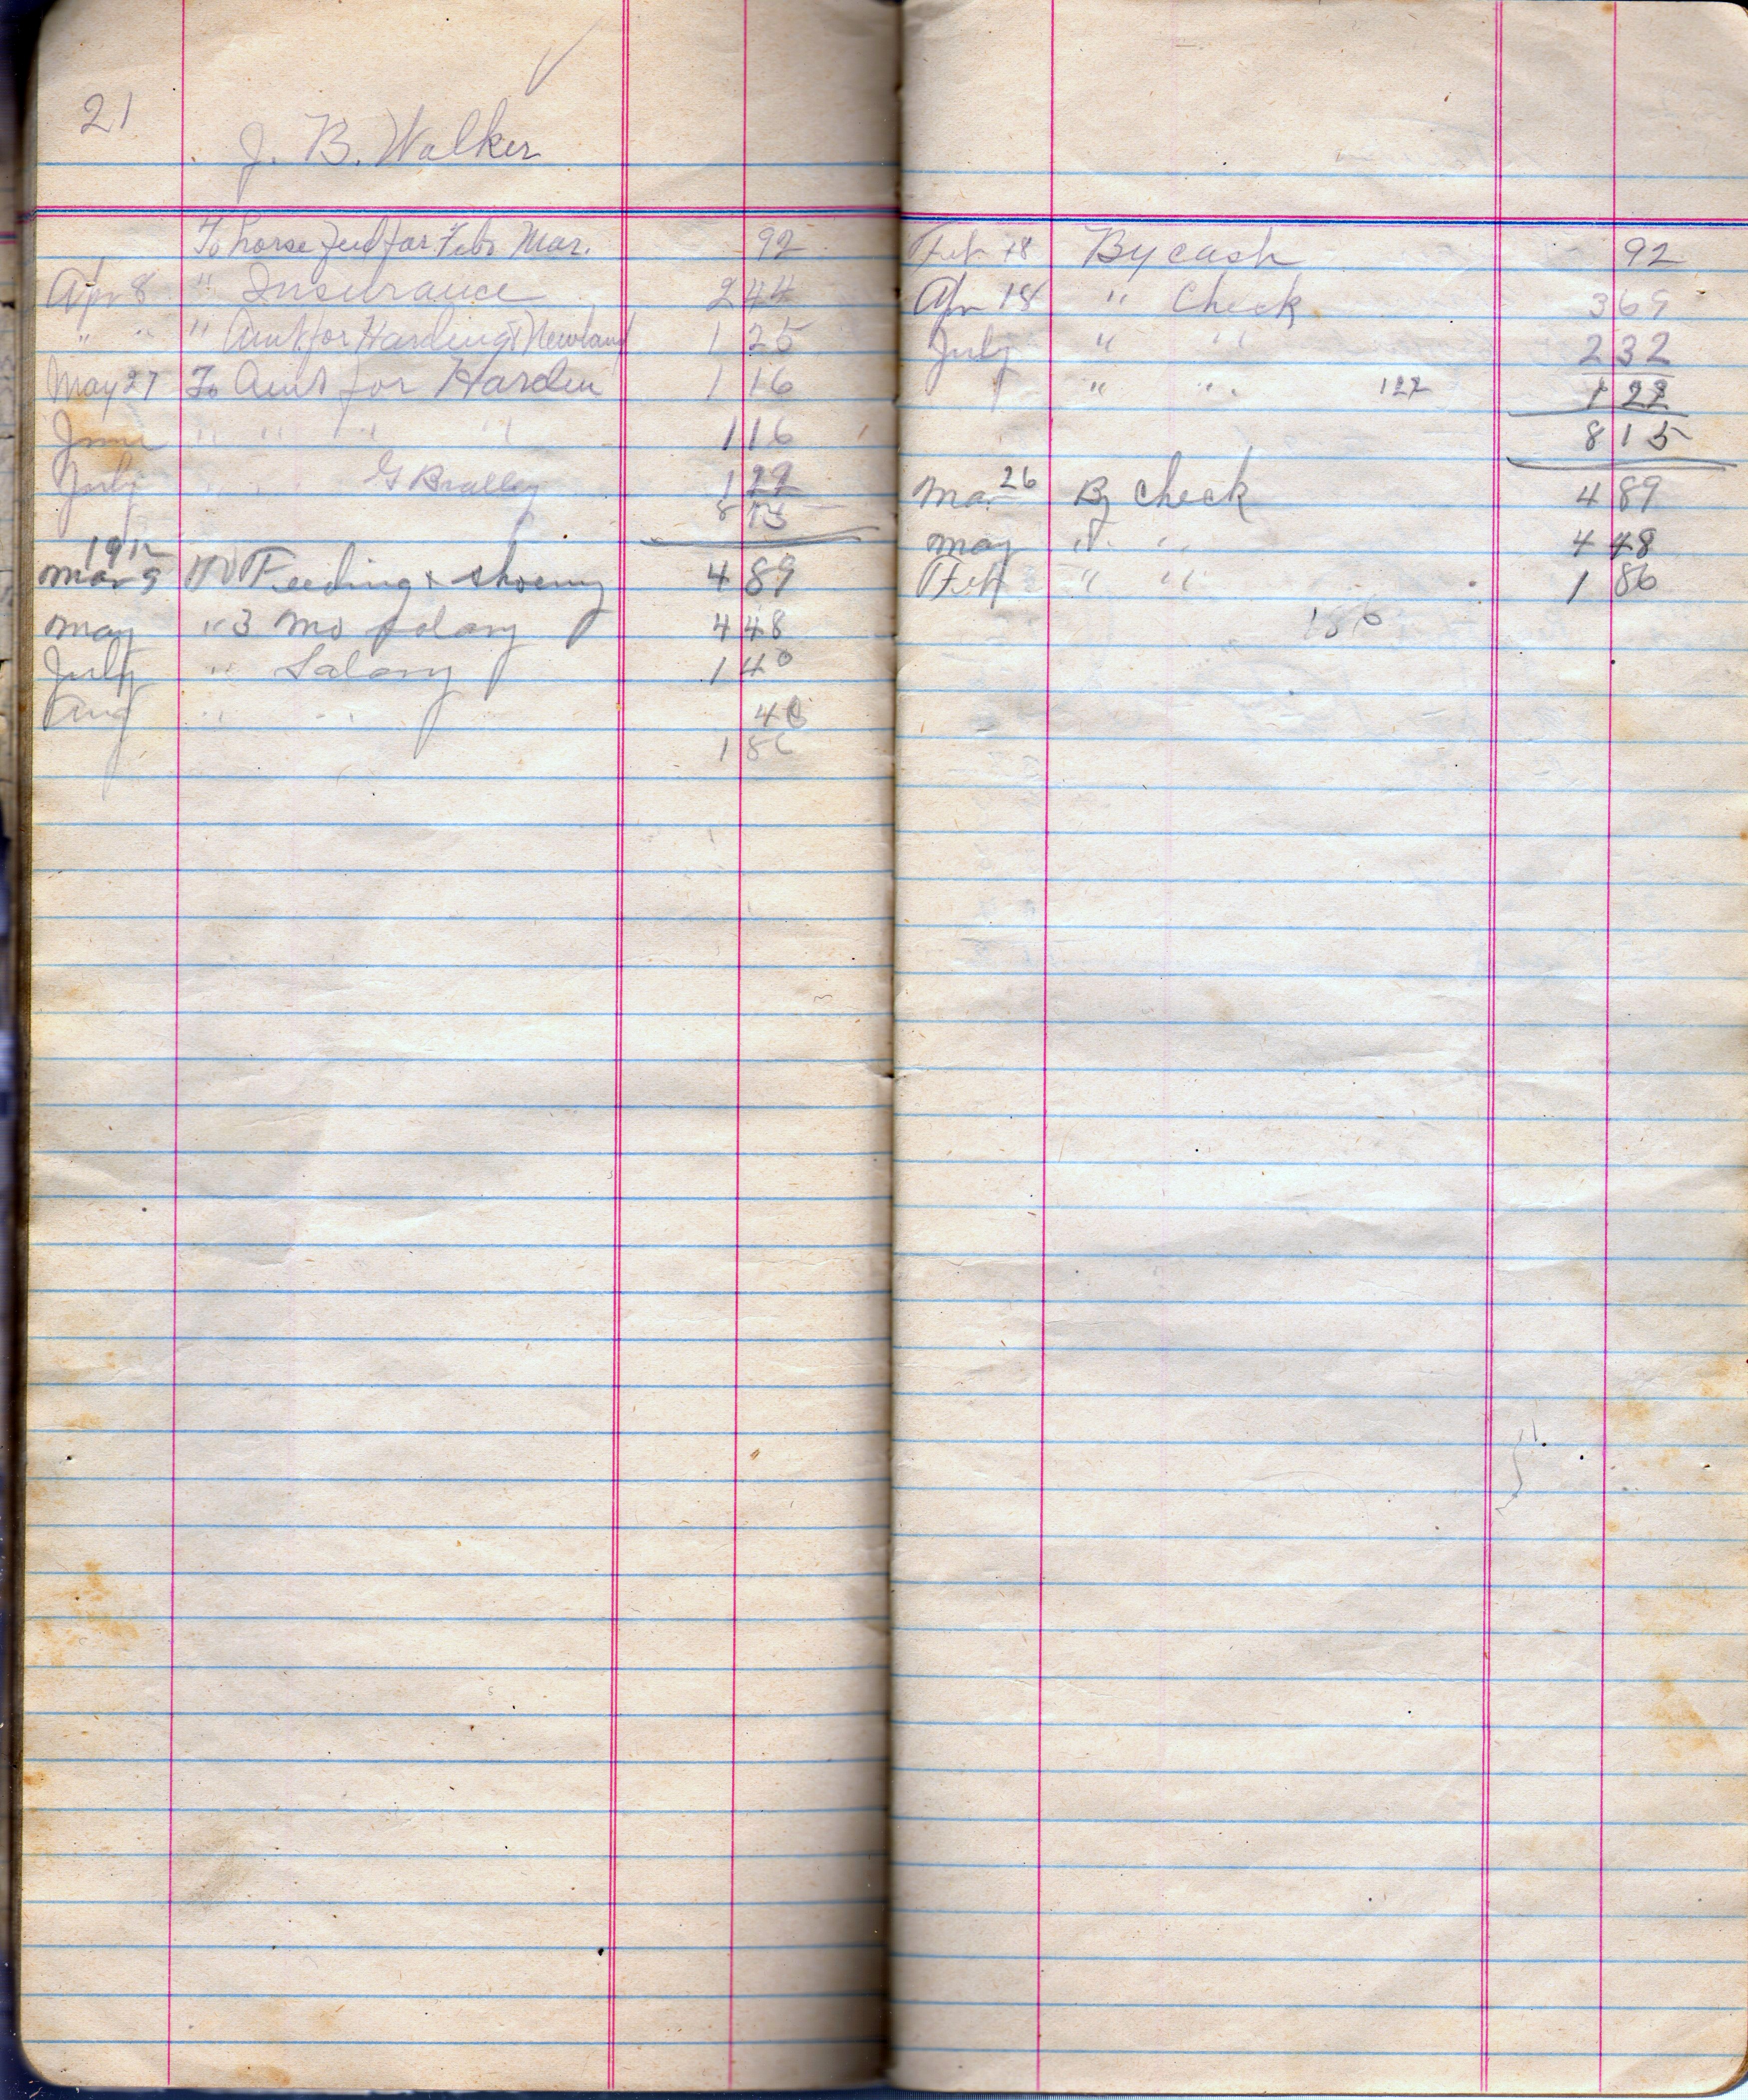 21
J. B. Walker
To horse feed for Feb & Mar. 92
Apr 8 " Insurance 2 44
" " " Amt for Harding & Newland 1 25
May 27 To Amt for Harden 1 16
June " " " " 1 16
July " " G Bralley 1 22
8 15
1912
Mar 9 To Feeding & shoeing 4 89
May " 3 Mo Salary 4 48
July " Salary 1 40
Aug " " 46
1 86
Feb 18 By cash 92
Apr 18 " Check 3 69
July " " 2 32
" " 122 1 22
8 15
Mar 26 By check 4 89
May " " 4 48
Feb " " 1 86
186